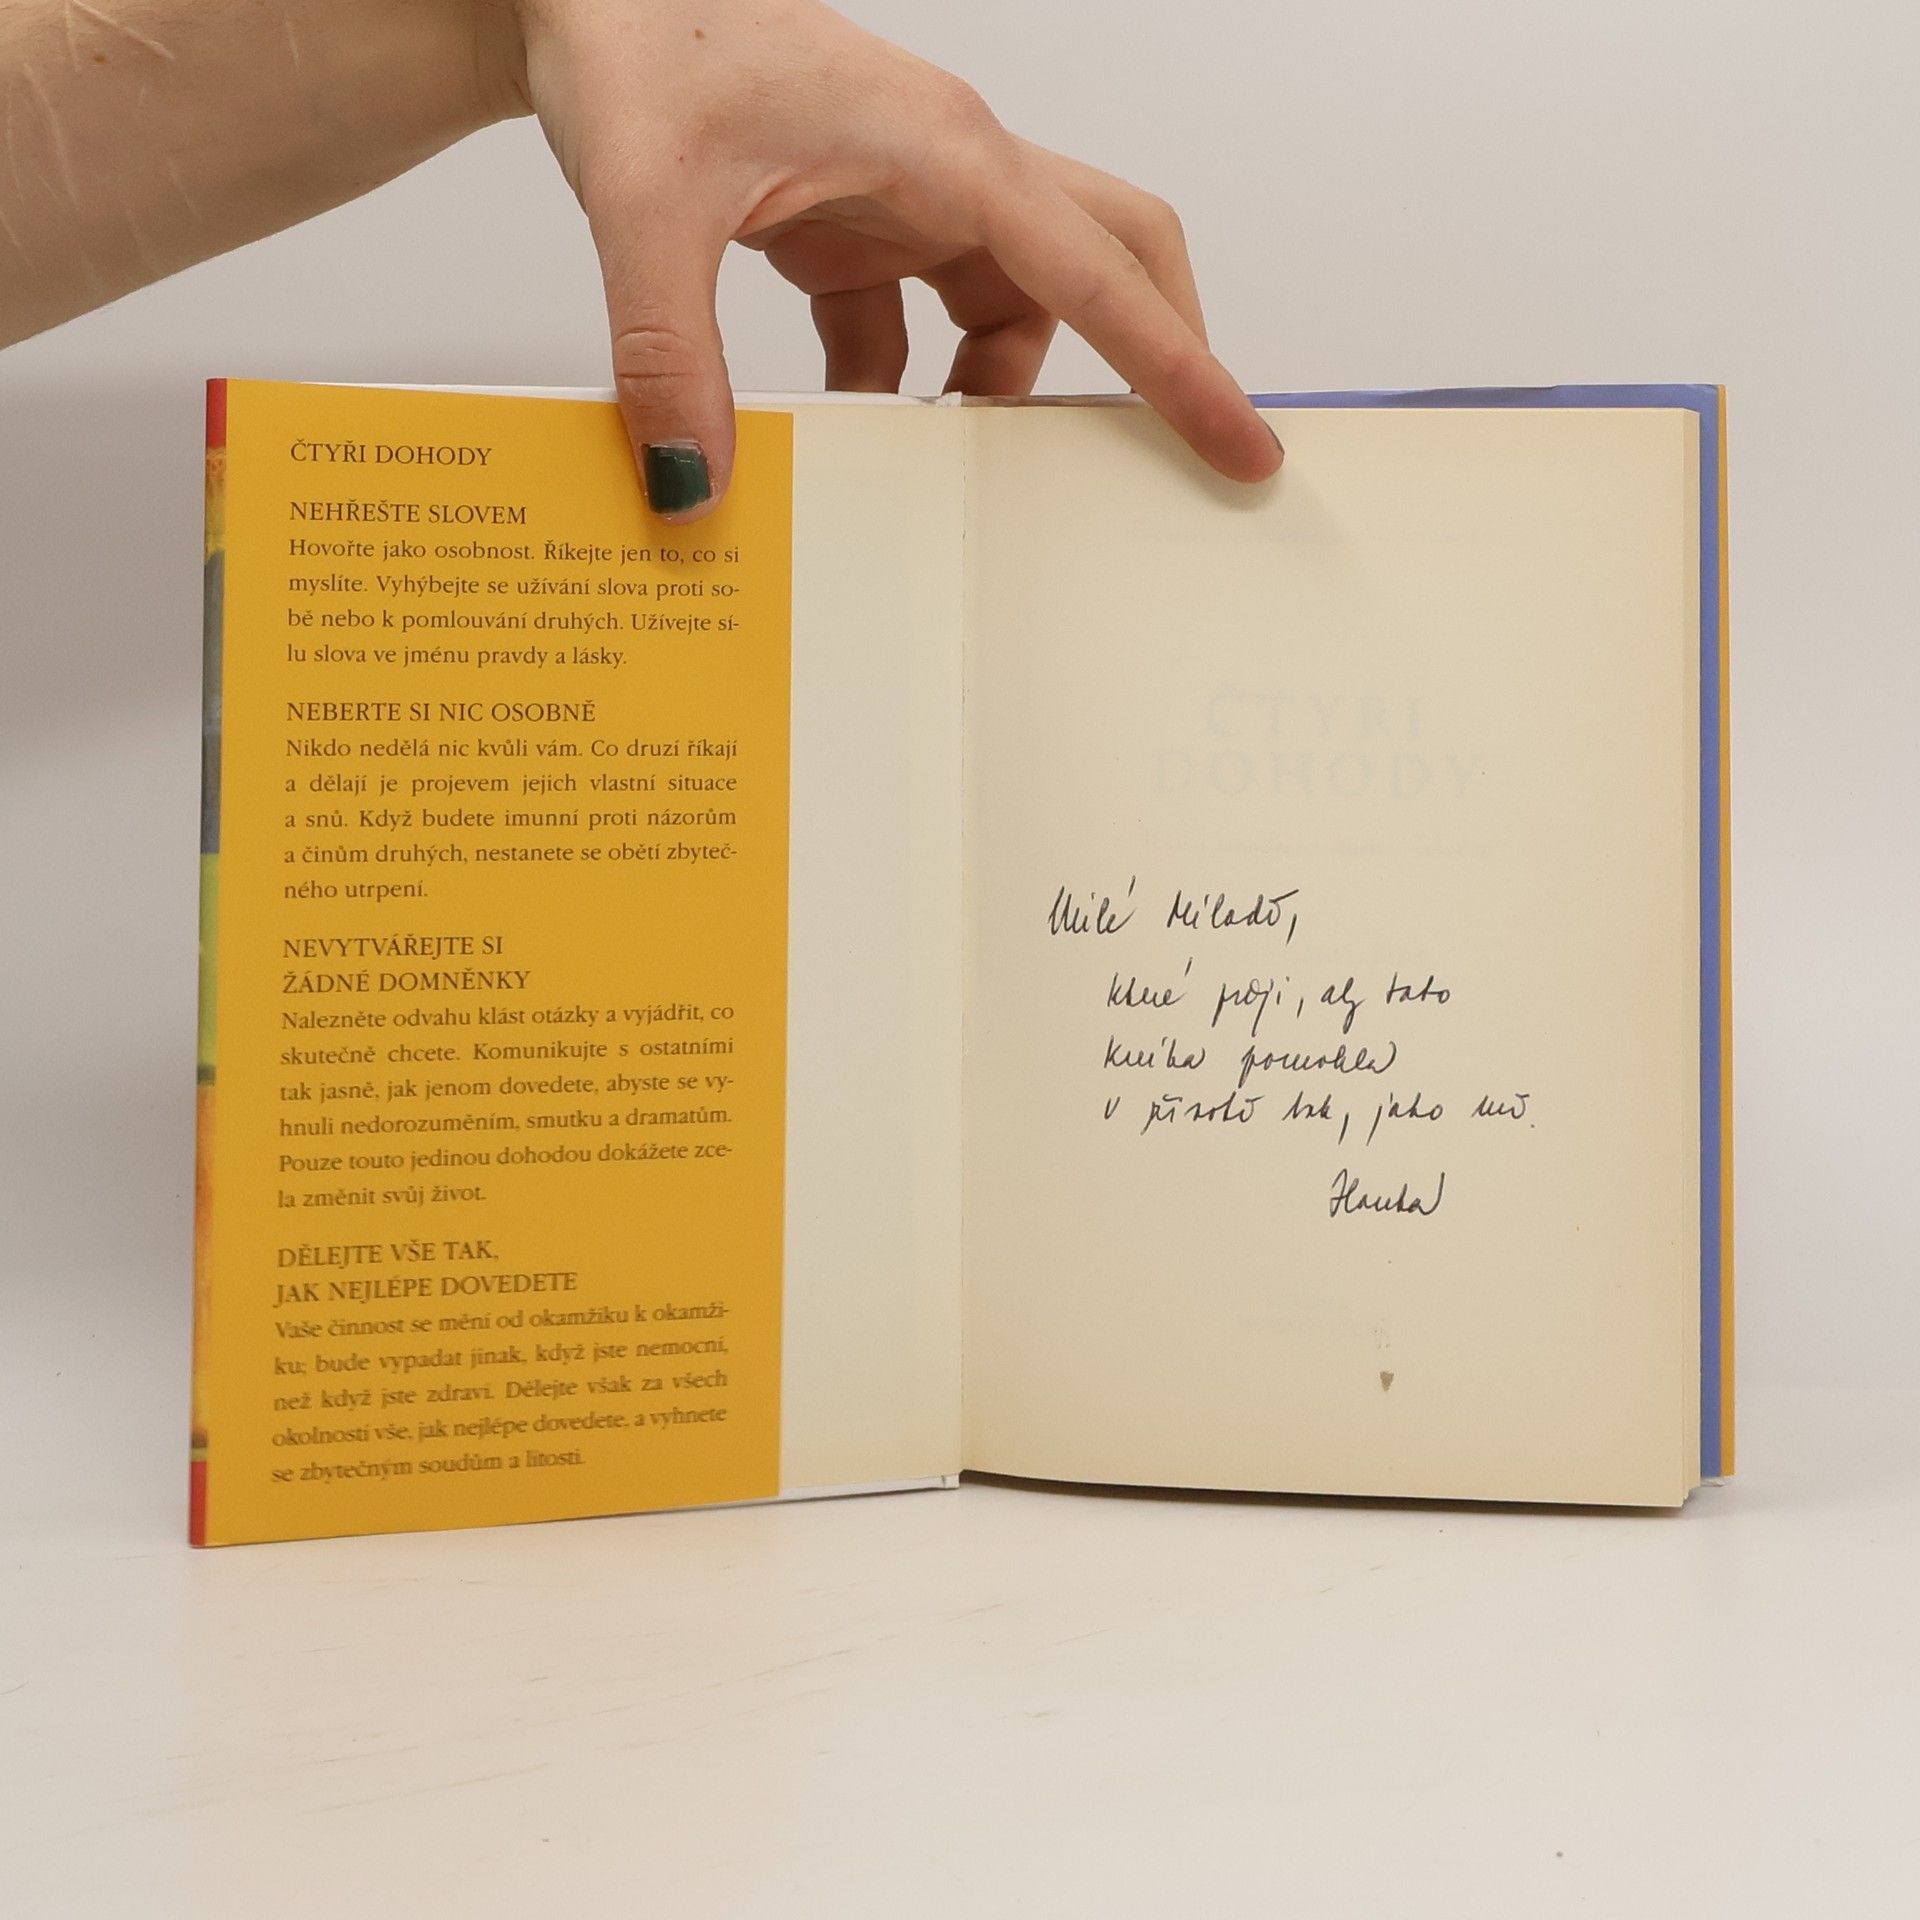 ČTYŘI DOHODY
NEHŘEŠTE SLOVEM
Hovořte jako osobnost. Říkejte jen to, co si
myslíte. Vyhýbejte se užívání slova proti so-
bě nebo k pomlouvání druhých. Užívejte sí-
lu slova ve jménu pravdy a lásky.
NEBERTE SI NIC OSOBNĚ
Nikdo nedělá nic kvůli vám. Co druzí říkají
a dělají je projevem jejich vlastní situace
a snů. Když budete imunní proti názorům
a činům druhých, nestanete se obětí zbyteč-
ného utrpení.
NEVYTVÁŘEJTE SI
ŽÁDNÉ DOMNĚNKY
Nalezněte odvahu klást otázky a vyjádřit, co
skutečně chcete. Komunikujte s ostatními
tak jasně, jak jenom dovedete, abyste se vy-
hnuli nedorozuměním, smutku a dramatům.
Pouze touto jedinou dohodou dokážete zce-
la změnit svůj život.
DĚLEJTE VŠE TAK,
JAK NEJLÉPE DOVEDETE
Vaše činnost se mění od okamžiku k okamži-
ku; bude vypadat jinak, když jste nemocní,
než když jste zdraví. Dělejte však za všech
okolností vše, jak nejlépe dovedete, a vyhnete
se zbytečným soudům a lítosti.
ČTYŘI
DOHODY
Milé Miladě,
které přeji, aby tato
kniha pomohla
v životě tak, jako mě.
Hanka